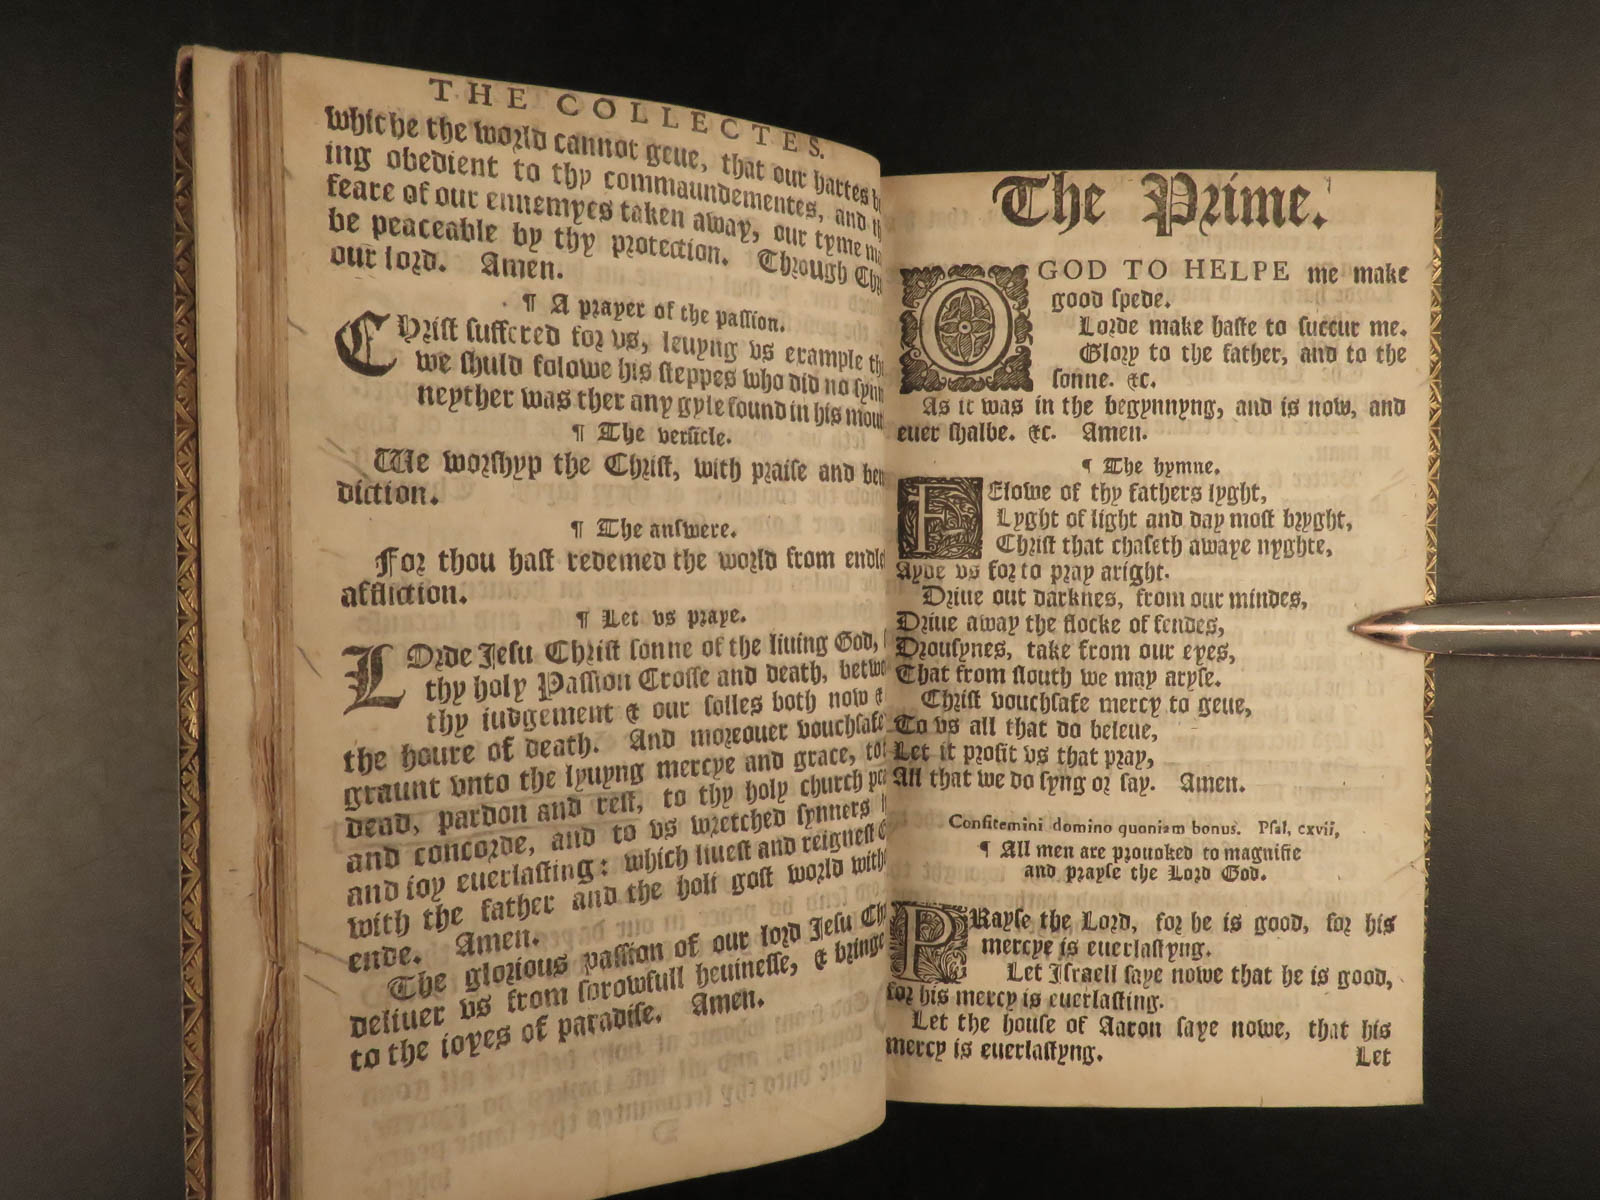 THE COLLECTES.
whiche the world cannot geue, that our hartes
ing obedient to thy commaundementes, and
feare of our ennemyes taken away, our tyme
be peaceable by thy protection. Through
our lord. Amen.
¶ A prayer of the passion.
Christ suffered for vs, leuyng vs example
we shuld folowe his steppes who did no
neyther was ther any gyle found in his
¶ The versicle.
We worshyp the Christ, with praise and
diction.
¶ The answere.
For thou hast redemed the world from
affliction.
¶ Let vs praye.
LOrde Jesu Christ sonne of the liuing God,
thy holy Passion Crosse and death,
thy iudgement & our solles both now &
the houre of death. And moreouer vouchsafe
graunt vnto the lyuyng mercye and grace,
dead, pardon and rest, to thy holy church
and concorde, and to vs wretched synners
and ioy euerlasting: which liuest and reignest
with the father and the holi gost world
ende. Amen.
The glorious passion of our lord Jesu
deliuer vs from sorowfull heuinesse, & bringe
to the ioyes of paradise. Amen.
The Prime.
O GOD TO HELPE me make
good spede.
Lorde make haste to succur me.
Glory to the father, and to the
sonne. &c.
As it was in the begynnyng, and is now, and
euer shalbe. &c. Amen.
¶ The hymne.
FElowe of thy fathers lyght,
Lyght of light and day most bryght,
Christ that chaseth awaye nyghte,
Ayde vs for to pray aright.
Driue out darknes, from our mindes,
Driue away the flocke of fendes,
Drousynes, take from our eyes,
That from slouth we may aryse.
Christ vouchsafe mercy to geue,
To vs all that do beleue,
Let it profit vs that pray,
All that we do syng or say. Amen.
Confitemini domino quoniam bonus. Psal, cxvii,
¶ All men are prouoked to magnifie
and prayse the Lord God.
PRayse the Lord, for he is good, for his
mercye is euerlastyng.
Let Israell saye nowe that he is good,
for his mercy is euerlasting.
Let the house of Aaron saye nowe, that his
mercy is euerlastyng.
Let